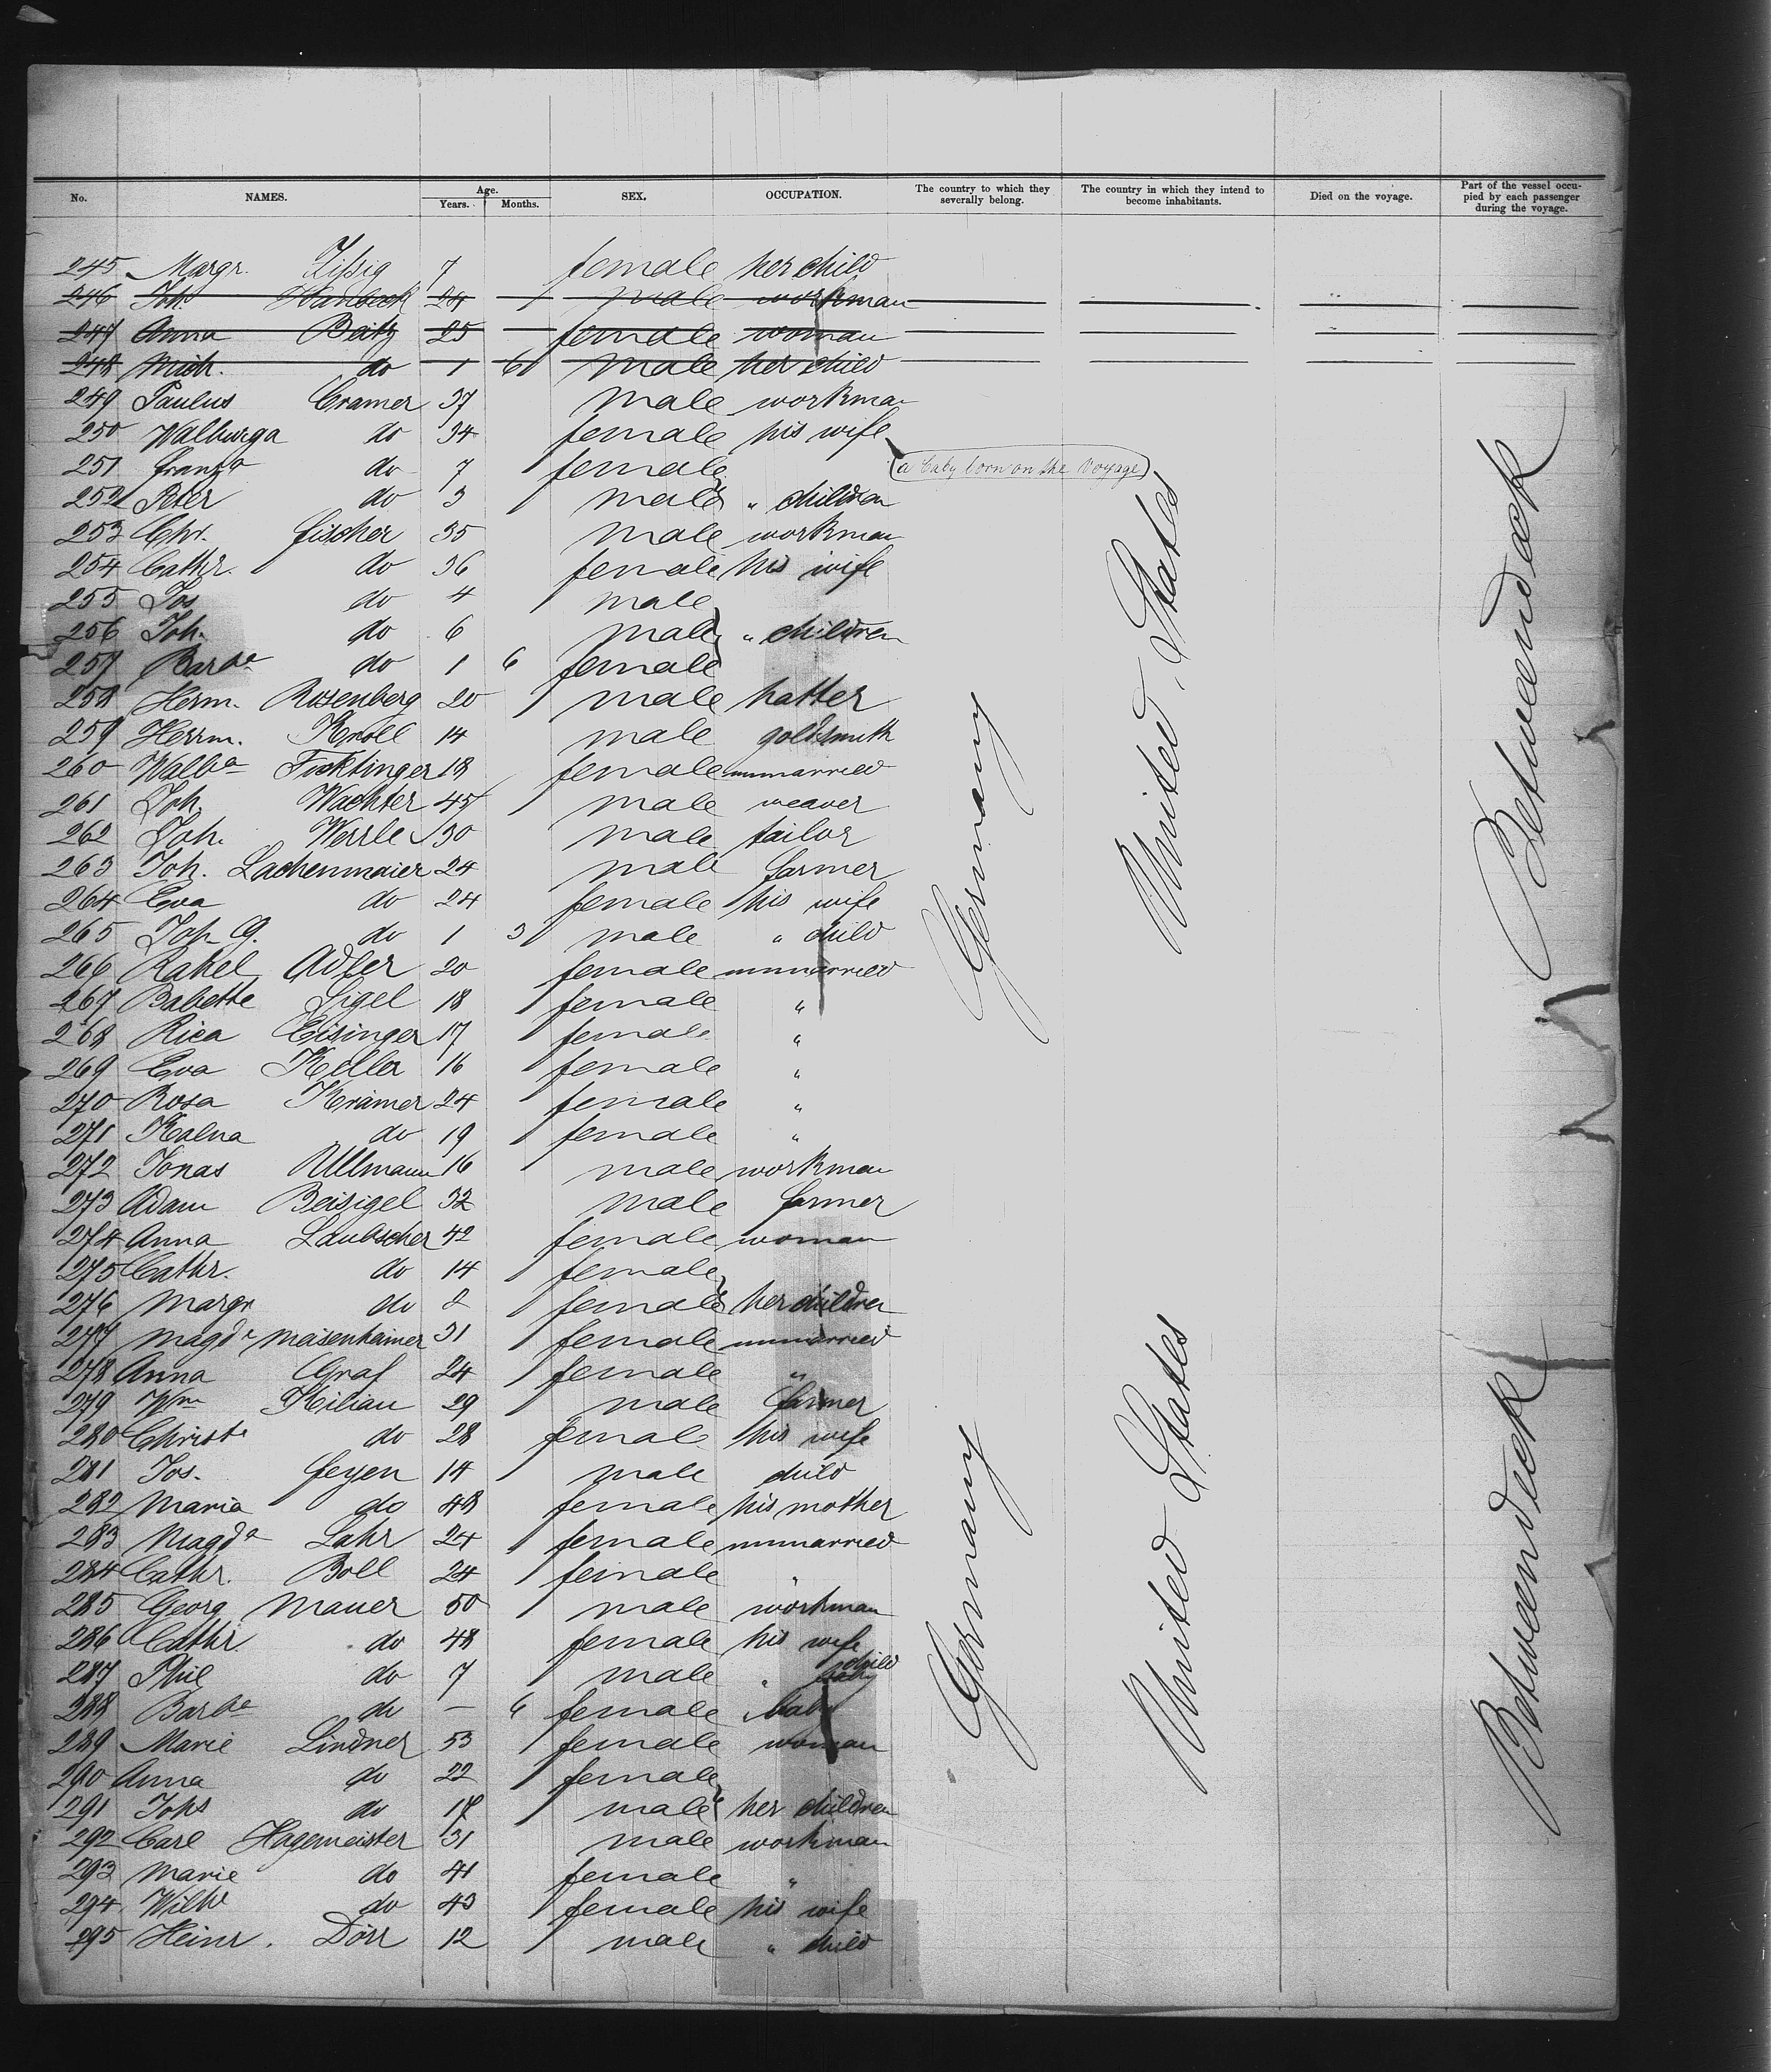 No. NAMES. Age. Years. Months. SEX. OCCUPATION. The country to which they severally belong. The country in which they intend to become inhabitants. Died on the voyage. Part of the vessel occupied by each passenger during the voyage.
245 Margr. Zißig 7 female her child
246 Joh. 24 male workman
247 Anna Beitz 25 female woman
248 Mich. do 1 6 male her child
249 Paulus Cramer 37 male workman
250 Walburga do 34 female his wife
a baby born on the voyage
251 Franza do 7 female
252 Peter do 3 male " children
253 Chr. Fischer 35 male workman
254 Cathr. do 36 female his wife
255 Jos do 4 male
256 Joh. do 6 male " children
257 Barba do 1 6 female
258 Herm. Rosenberg 20 male hatter
259 Herrm. Knoll 14 male goldsmith
260 Walba Ficktinger 18 female unmarried
261 Joh. Wachter 45 male weaver
262 Joh. Werrle 30 male tailor
263 Joh. Lachenmaier 24 male farmer
264 Eva do 24 female his wife
265 Joh G. do 1 3 male " child
266 Rahel Adler 20 female unmarried
267 Babette Sigel 18 female "
268 Rica Eisinger 17 female "
269 Eva Keller 16 female "
270 Rosa Krämer 24 female "
271 Kalna do 19 female "
272 Jonas Ullmann 16 male workman
273 Adam Beisigel 32 male farmer
274 Anna Laubscher 42 female woman
275 Cathr. do 14 female
276 Margr do 8 female her children
277 Magda Meisenheimer 31 female unmarried
278 Anna Graf 24 female "
279 Wm Kilian 29 male farmer
280 Christe do 28 female his wife
281 Jos. Feyen 14 male child
282 Maria do 48 female his mother
283 Magda Lahr 24 female unmarried
284 Cathr. Boll 24 female "
285 Georg Mauer 50 male workman
286 Cathr do 48 female his wife
287 Phil do 7 male " child
288 Barba do — 6 female baby
289 Marie Lindner 53 female woman
290 Anna do 22 female
291 Johs do 17 male her children
292 Carl Hagemeister 31 male workman
293 Marie do 41 female "
294 Wilhe do 43 female his wife
295 Heinr. Dörr 12 male " child
Germany United States Betweendeck
Germany United States Betweendeck